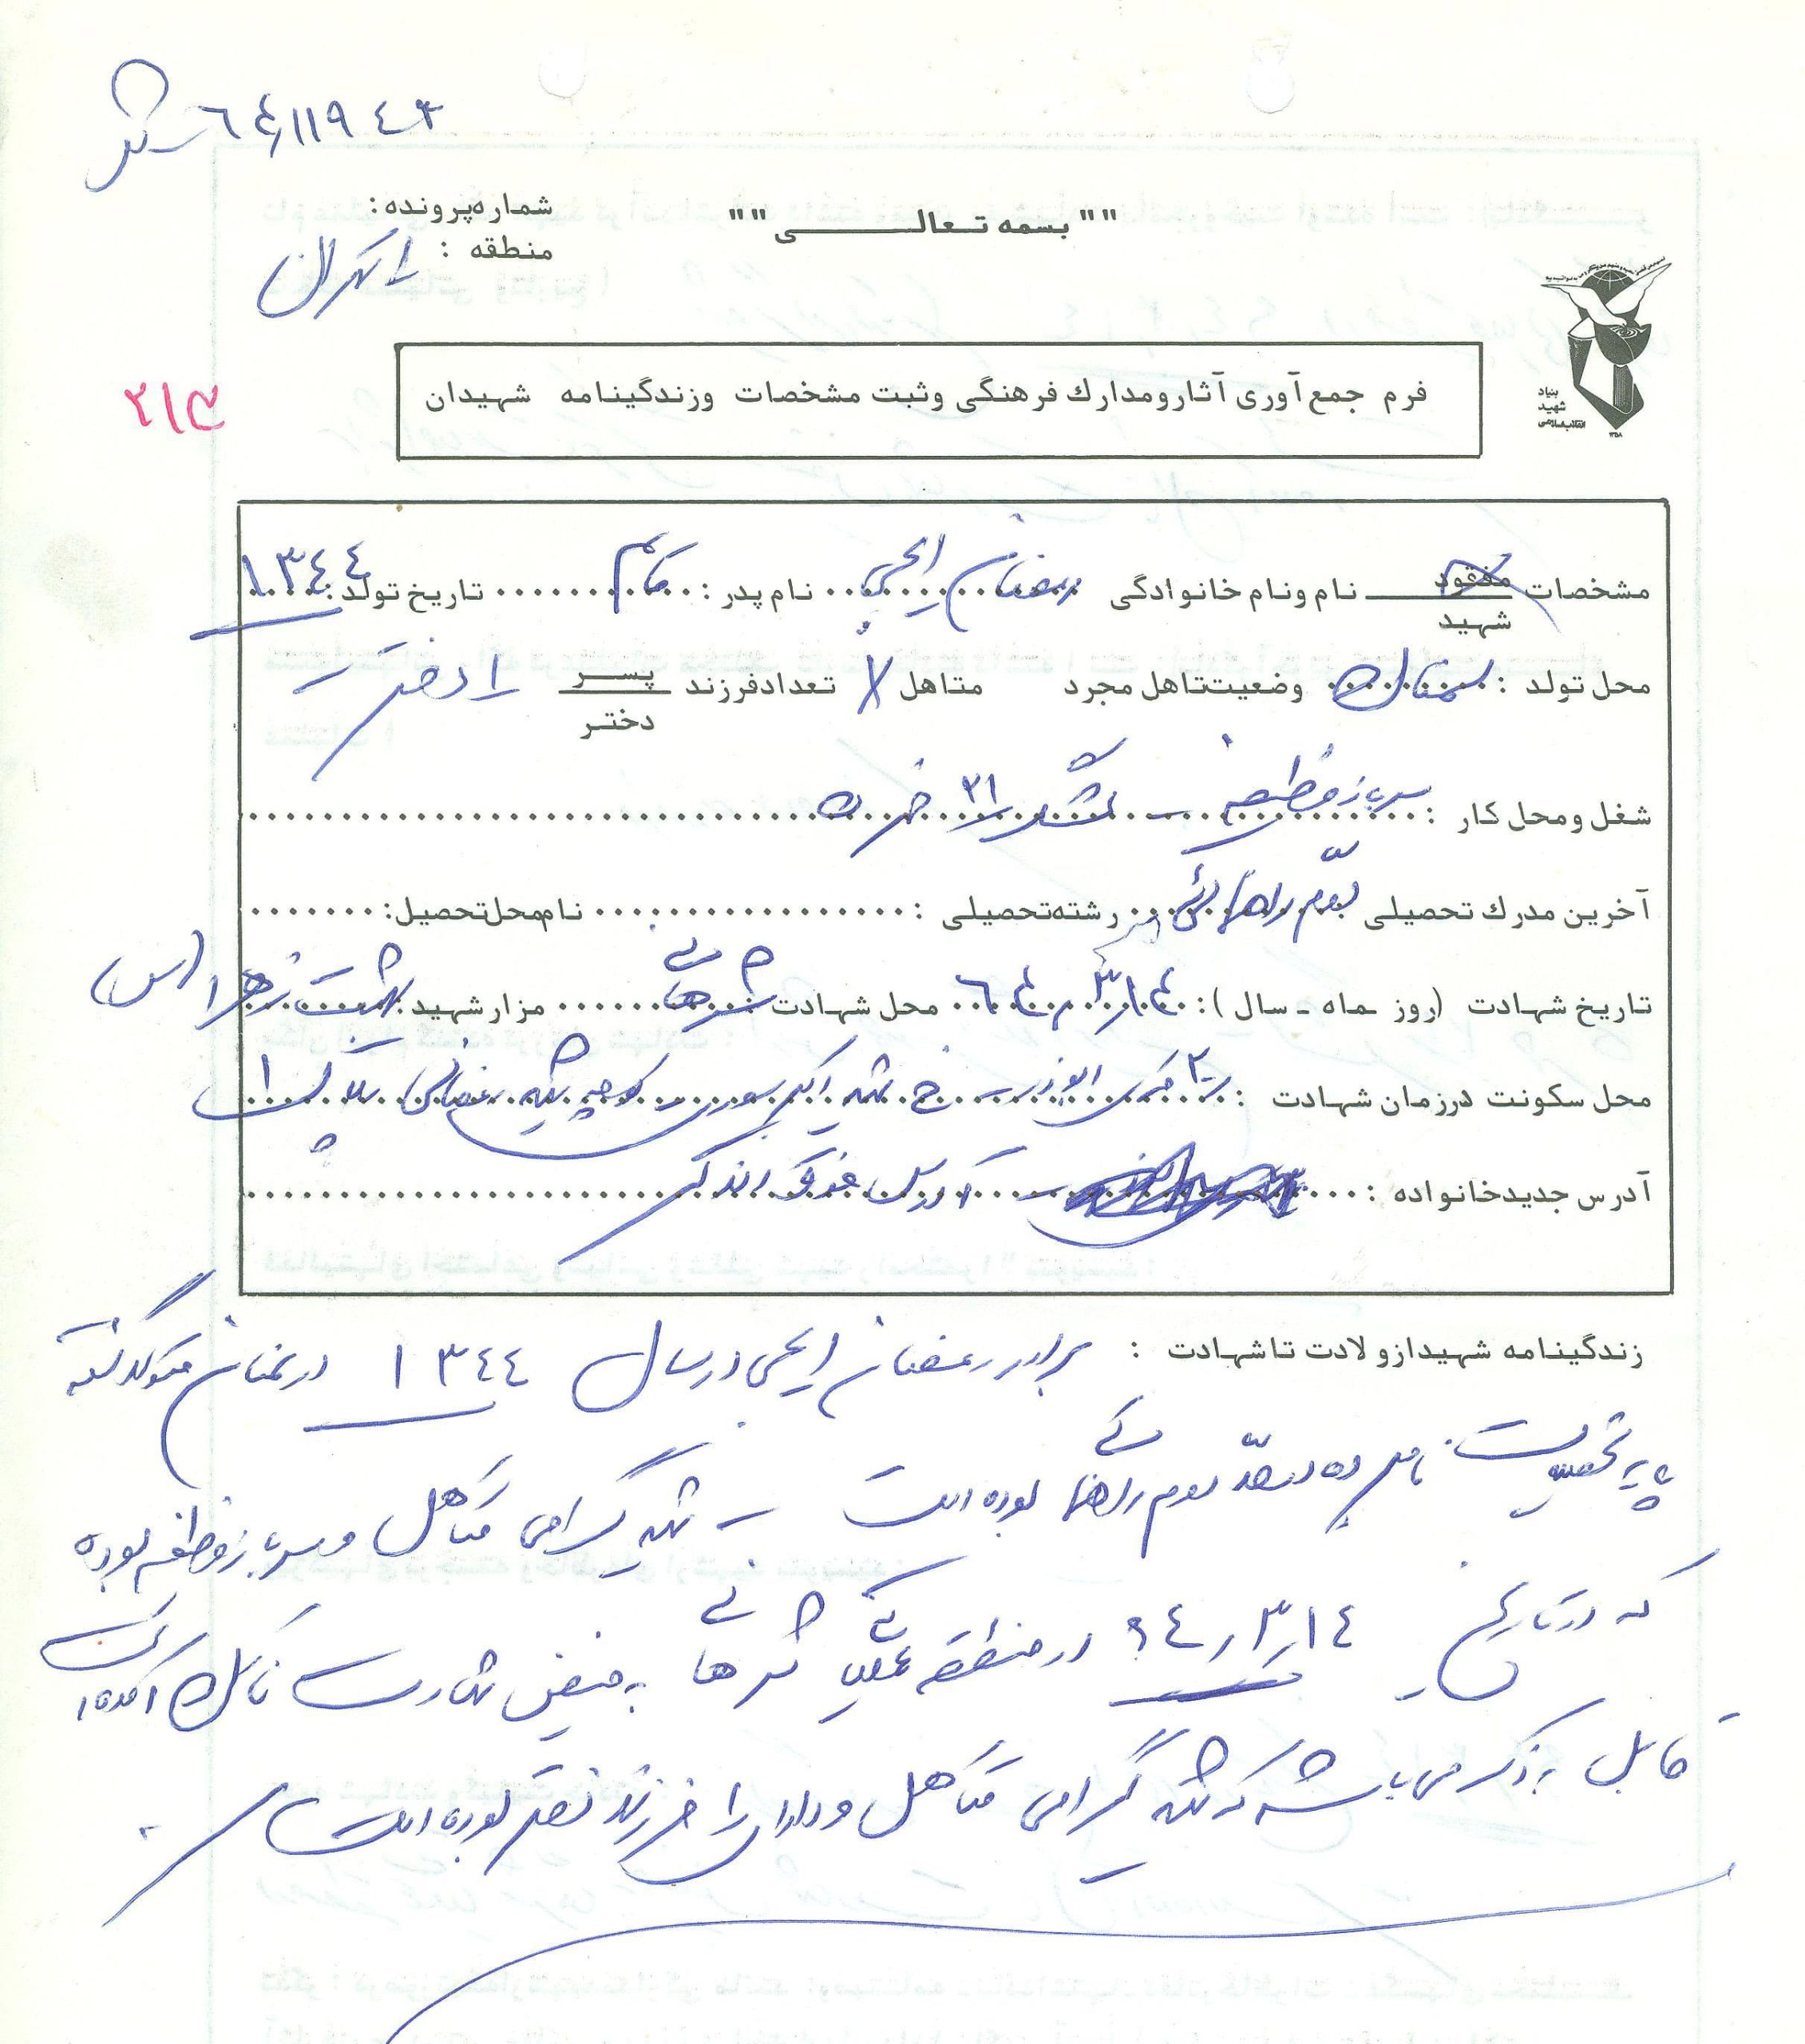 ۶۴۱۱۹۴۳
شماره پرونده :
"" بسمه تعالــی ""
منطقه : ۱ تهران
بنیاد شهید انقلاب اسلامی
۲۱۳
فرم جمع آوری آثار و مدارک فرهنگی و ثبت مشخصات و زندگینامه شهیدان
مشخصات مفقود شهید نام و نام خانوادگی رمضان نام پدر : تاریخ تولد : ۱۳۴۴
محل تولد : سمنان وضعیت تاهل مجرد متاهل X تعداد فرزند پسر دختر ۱ دختر
شغل و محل کار : سرباز وظیفه - لشکر ۲۱ حمزه
آخرین مدرک تحصیلی دوم راهنمائی رشته تحصیلی : نام محل تحصیل :
تاریخ شهادت (روز ماه - سال) : ۶۴٫۳٫۱۴ محل شهادت شرهانی مزار شهید : بهشت زهرا (س)
محل سکونت در زمان شهادت : ۲۰ متری ابوذر - خ شهید اکبر کوچه شهید پلاک ۱
آدرس جدید خانواده : آدرس فوق الذکر
زندگینامه شهید از ولادت تا شهادت : برادر رمضان در سال ۱۳۴۴ در سمنان متولد شده
پایه تحصیلات نامبرده در حد دوم راهنمائی بوده است - شهید گرامی متاهل و سرباز وظیفه بوده
که در تاریخ ۶۴٫۳٫۱۴ در منطقه عملیاتی شرهانی به فیض شهادت نائل آمده است
قابل به ذکر می باشد که شهید گرامی متاهل و دارای ۱ فرزند دختر بوده است